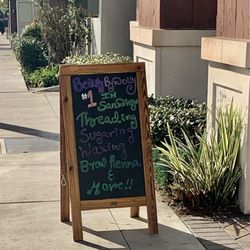 Beauty By Dolly
#1 In
San Diego
Threading
Sugaring
Waxing
Brow Henna
&
More!!